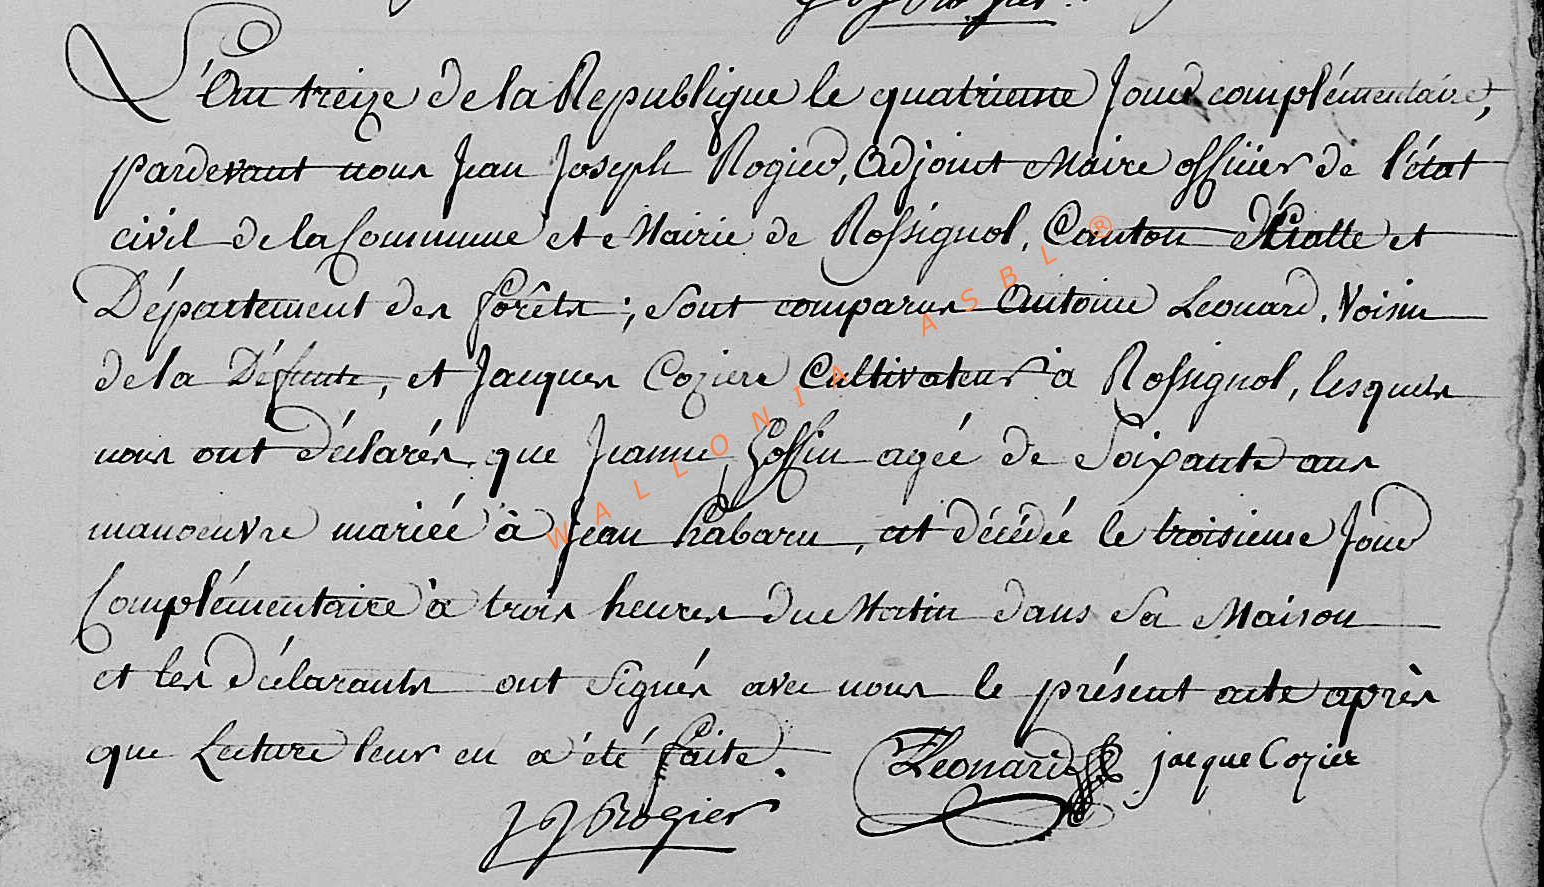 J J Rogier.
L'An treize de la Republique le quatrieme Jour complémentaire,
pardevant nous Jean Joseph Rogier, Adjoint Maire officier de l'état
civil de la Commune et Mairie de Rossignol, Canton d'Etalle et
Département des forêts; sont comparus Antoine Leonard, Voisin
de la Défunte, et Jacques Coziere Cultivateur à Rossignol, lesquels
nous ont déclarés, que Jeanne Goffin agée de Soixante ans
manoeuvre mariée à Jean habaru, est décédée le troisieme Jour
Complémentaire à trois heures du Matin dans Sa Maison
et les déclarants ont Signés avec nous le présent acte après
que Lecture leur en a été faite.
Leonard jacque Cozier
J J Rogier
WALLONIA ASBL ®